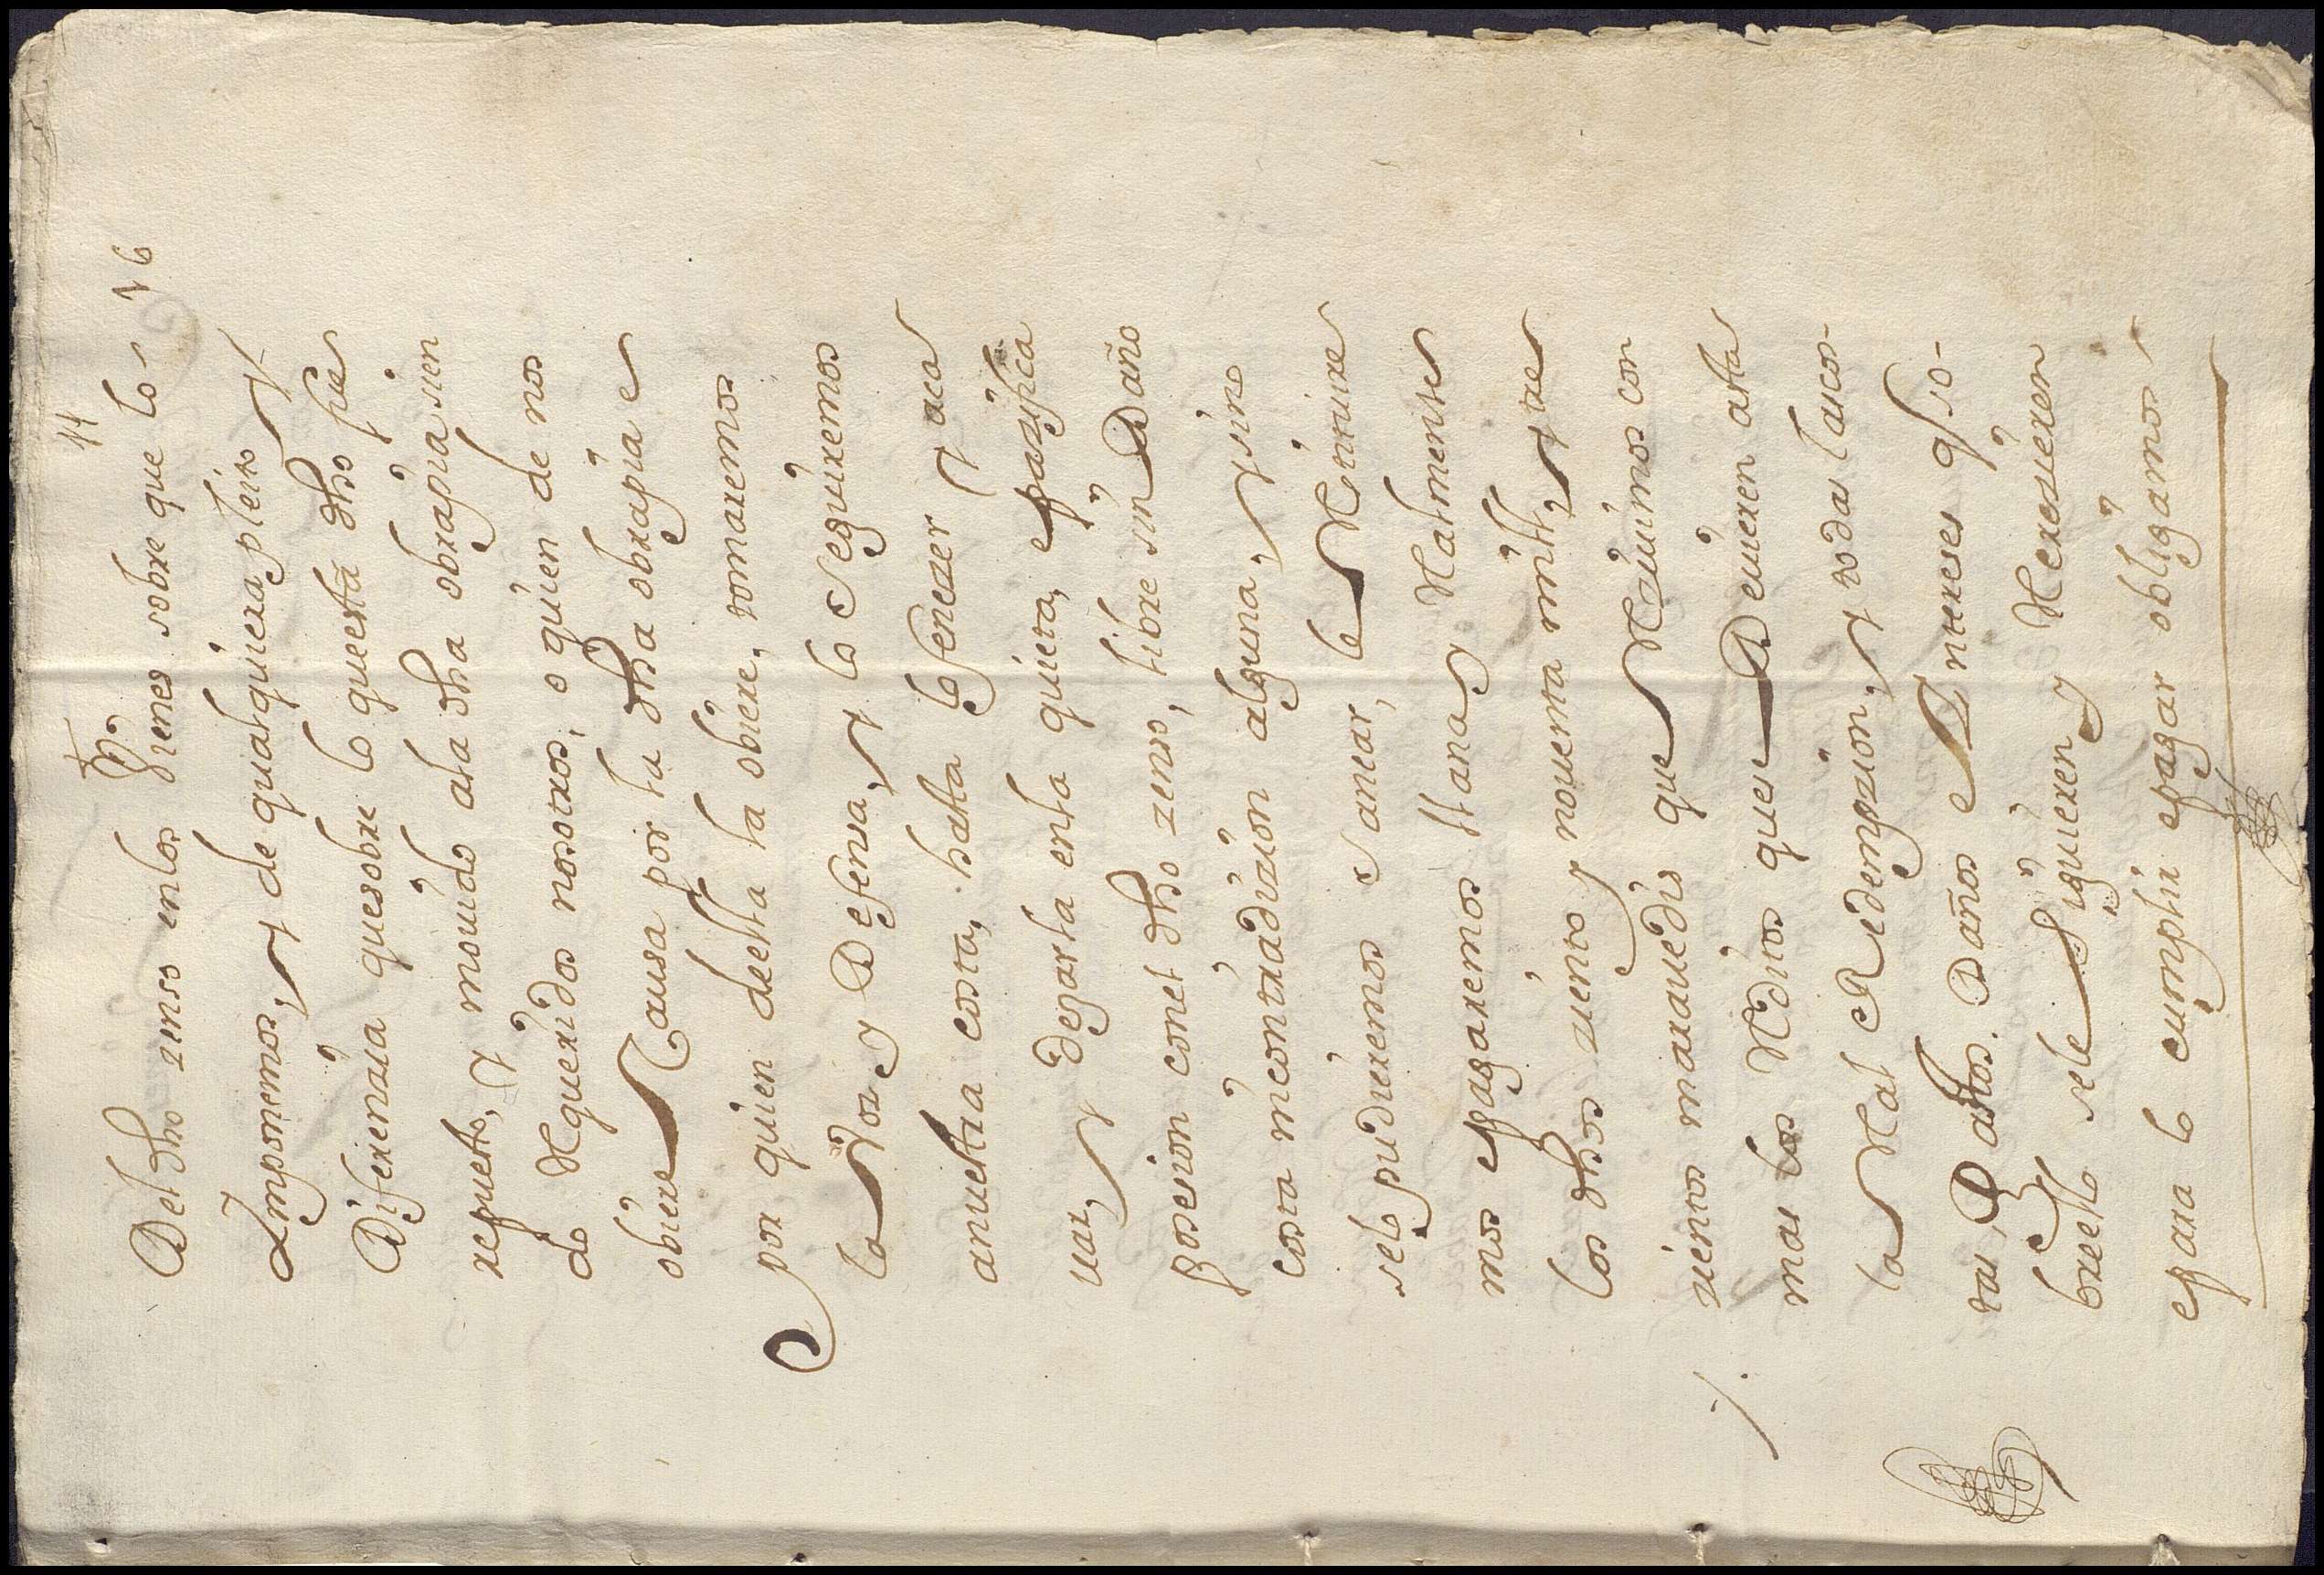 11
16
Del dho zenso enlos Vienes sobre que lo
Imponemos, y de qualquiera pleito y
Diferenzia que sobre lo que esta dho fue
re puesto, y mouido ala dha obra pia sien
do Requerido nosotros, o quien de nos
obiere Causa por la dha obra pia e
por quien de ella la obiere, tomaremos
la Voz y Defensa, y lo seguiremos
a nuestra costa, hasta lo fenezer y aca
uar, y dejarla enla quieta, e pazifica
posesion conel dho zenso, libre sin Daño
costa ni contradizion alguna, y si no
selo pudieremos sanear, le Restituire
mos e pagaremos llana y Realmente
los dhos ziento y nouenta mill, y tre
zientos marauedis que Reziuimos con
mas los Reditos que se Deuieren asta
la Real Redempzion, y todas las cos-
tas, Gastos. Daños e Intereses q so-
bre ello se le Siguieren y Recresieren
e para lo cumplir e pagar obligamos